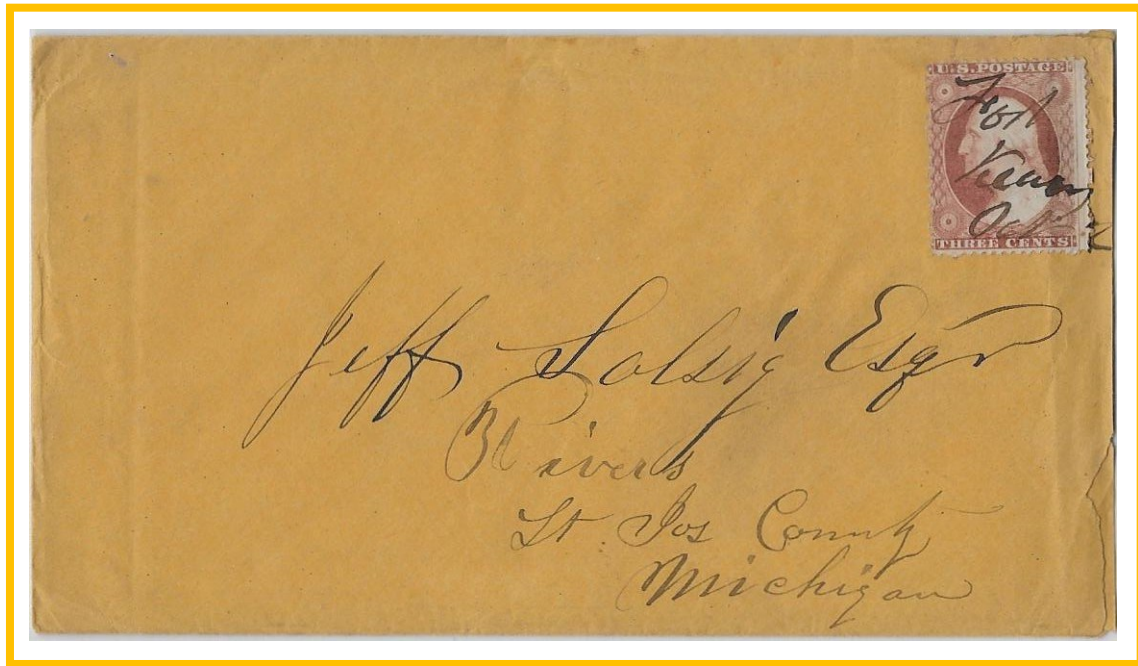 U.S. POSTAGE
Fort
Kearny
Oct
THREE CENTS
Jeff Solsig Esqr
3 Rivers
St. Jos County
Michigan